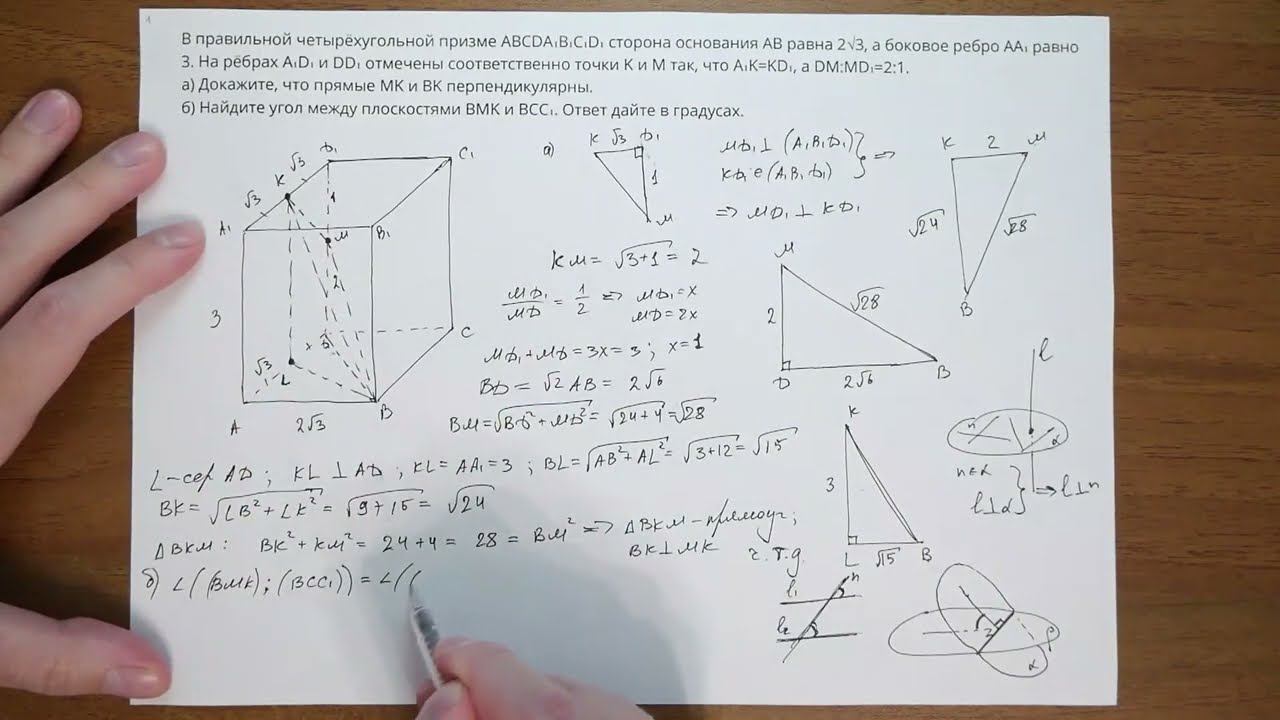 1
В правильной четырёхугольной призме ABCDA₁B₁C₁D₁ сторона основания AB равна 2√3, а боковое ребро AA₁ равно
3. На рёбрах A₁D₁ и DD₁ отмечены соответственно точки K и M так, что A₁K=KD₁, а DM:MD₁=2:1.
а) Докажите, что прямые MK и BK перпендикулярны.
б) Найдите угол между плоскостями BMK и BCC₁. Ответ дайте в градусах.
D₁
C₁
√3
K
√3
1
A₁
B₁
M
2
3
D
C
√3
L
A
2√3
B
а)
K √3 D₁
1
M
MD₁ ⊥ (A₁B₁D₁)
KD₁ ∈ (A₁B₁D₁)
} =>
=> MD₁ ⊥ KD₁
K 2 M
√24
√28
B
KM = √3+1 = 2
MD₁/MD = 1/2 => MD₁ = x
MD = 2x
MD₁ + MD = 3x = 3 ; x = 1
BD = √2 AB = 2√6
BM = √BD² + MD² = √24+4 = √28
M
2
√28
D
2√6
B
L - сер AD ; KL ⊥ AD ; KL = AA₁ = 3 ; BL = √AB² + AL² = √3+12 = √15
BK = √LB² + LK² = √9+15 = √24
ΔBKM : BK² + KM² = 24 + 4 = 28 = BM² => ΔBKM - прямоуг ;
BK ⊥ MK
ч.т.д
K
3
L
√15
B
l
n
α
n ∈ α
l ⊥ α
} => l ⊥ n
б) ∠((BMK) ; (BCC₁)) = ∠((
l₁
l₂
n
β
α